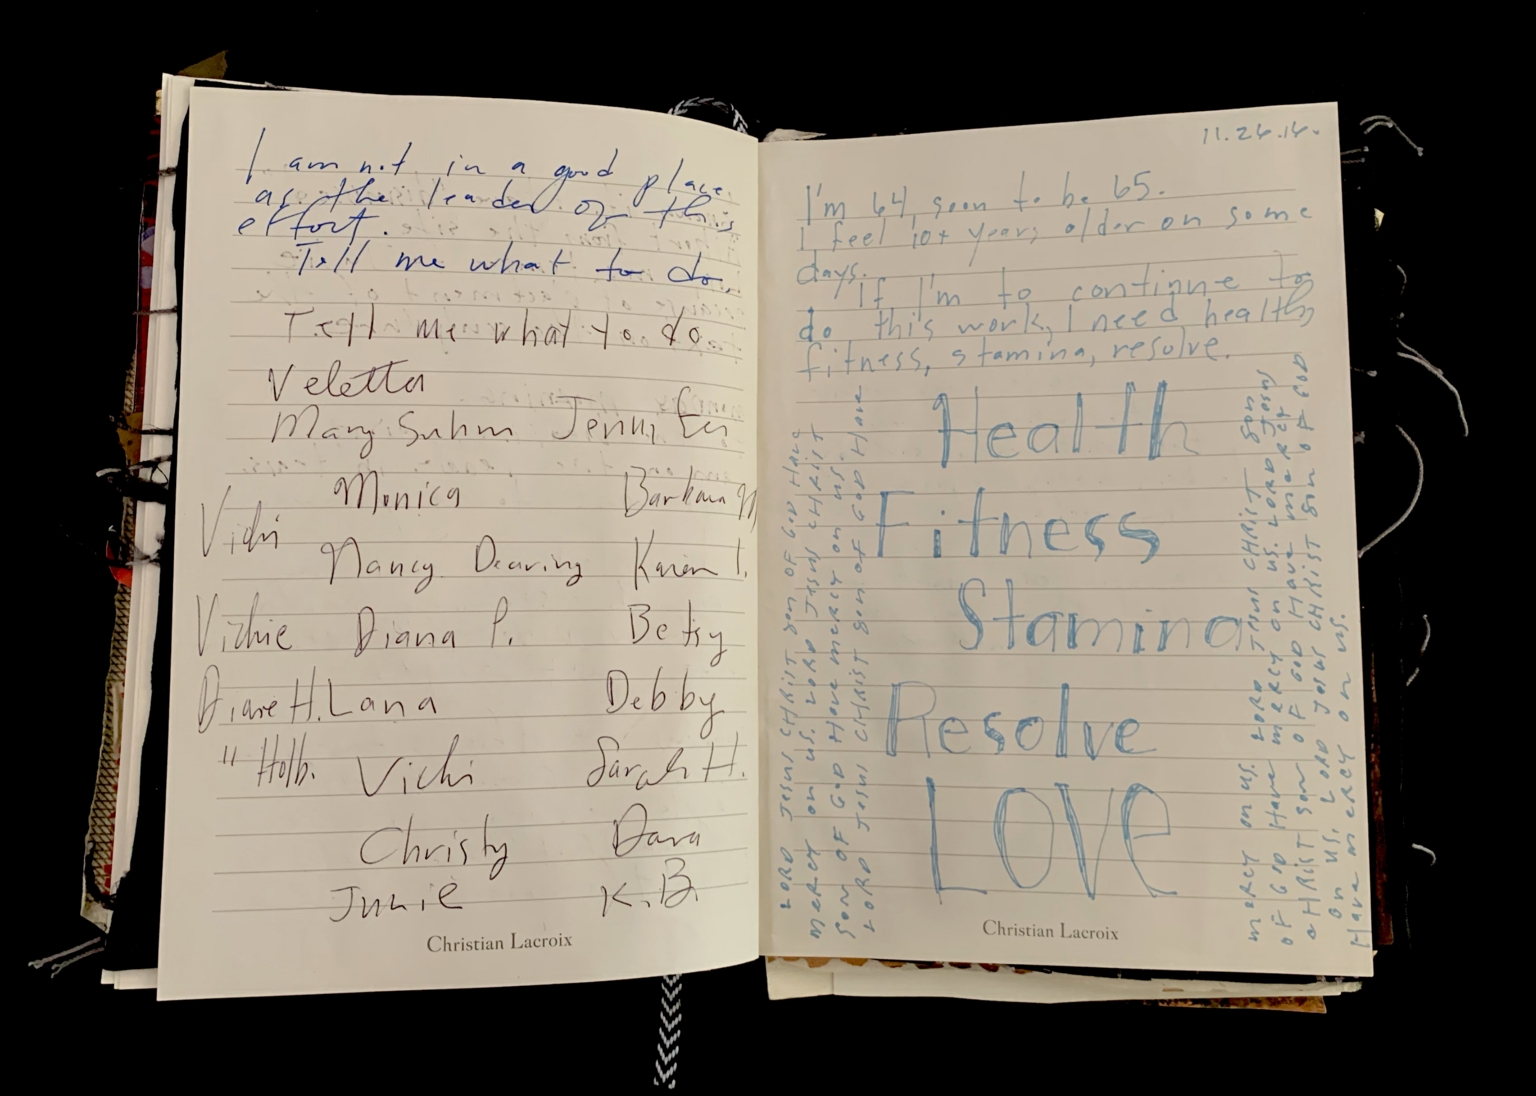 I am not in a good place
as the leader of this
effort.
Tell me what to do.
Tell me what to do
Veletta
Mary Suhm Jennifer
Monica Barbara M
Vicki
Nancy Dearing Karen I.
Vickie Diana P. Betsy
Diane H. Lana Debby
" Holb. Vicki Sarah H.
Christy Dara
Junie K.B.
Christian Lacroix
11.26.16.
I'm 64, soon to be 65.
I feel 10+ years older on some
days.
If I'm to continue to
do this work, I need health,
fitness, stamina, resolve.
Health
Fitness
Stamina
Resolve
LOVE
LORD JESUS CHRIST son OF GOD HAVE
mercy on us. LORD JESUS CHRIST
Son OF GOD Have mercy on us.
LORD JESUS CHRIST son of GOD Have
mercy on us. LORD JESUS CHRIST Son
OF GOD Have mercy on us. LORD Jesus
CHRIST Son OF GOD Have mercy
on us. LORD JESUS CHRIST Son OF GOD
Have mercy on us.
Christian Lacroix